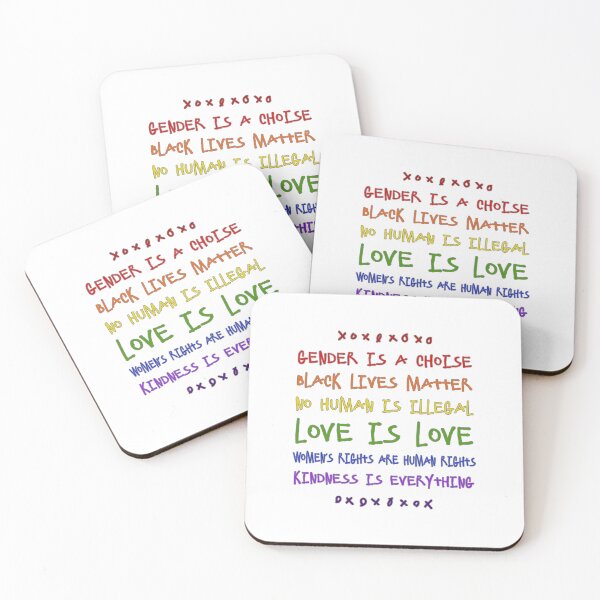 xoxoxoxo
GENDER IS A CHOISE
BLACK LIVES MATTER
NO HUMAN IS ILLEGAL
LOVE IS LOVE
HTS
THI
xoxoxoxo
GENDER IS A CHOISE
BLACK LIVES MATTER
NO HUMAN IS ILLEGAL
LOVE IS LOVE
WOMEN'S RIGHTS ARE HUMAN RIGHTS
KINDNESS IS EVERYTHING
xoxoxoxo
GENDER IS A CHOISE
BLACK LIVES MATTER
NO HUMAN IS ILLEGAL
LOVE IS LOVE
WOMEN'S RIGHTS ARE HUMAN
KINDNESS IS EVERY
xoxoxoxo
GENDER IS A CHOISE
BLACK LIVES MATTER
NO HUMAN IS ILLEGAL
LOVE IS LOVE
WOMEN'S RIGHTS ARE HUMAN RIGHTS
KINDNESS IS EVERYTHING